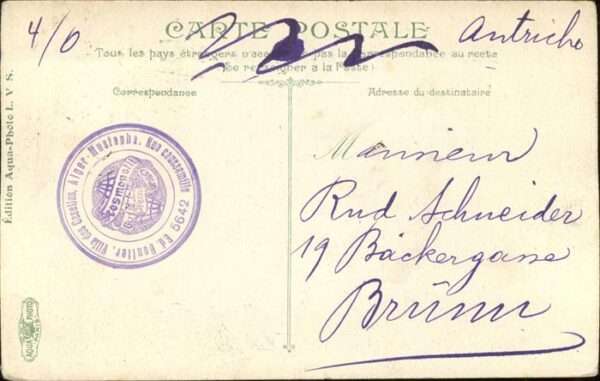 4/0
CARTE POSTALE
Autriche
Tous les pays étrangers n'acceptent pas la correspondance au recto
(Se renseigner à la Poste)
Correspondance
Adresse du destinataire
Édition Aqua-Photo L. V. S.
Ed. Villa des Alger-Mustapha. Rue
Cosmopolit
5642
Monsieur
Rud Schneider
19 Bäckergasse
Brünn
AQUA PHOTO
PARIS